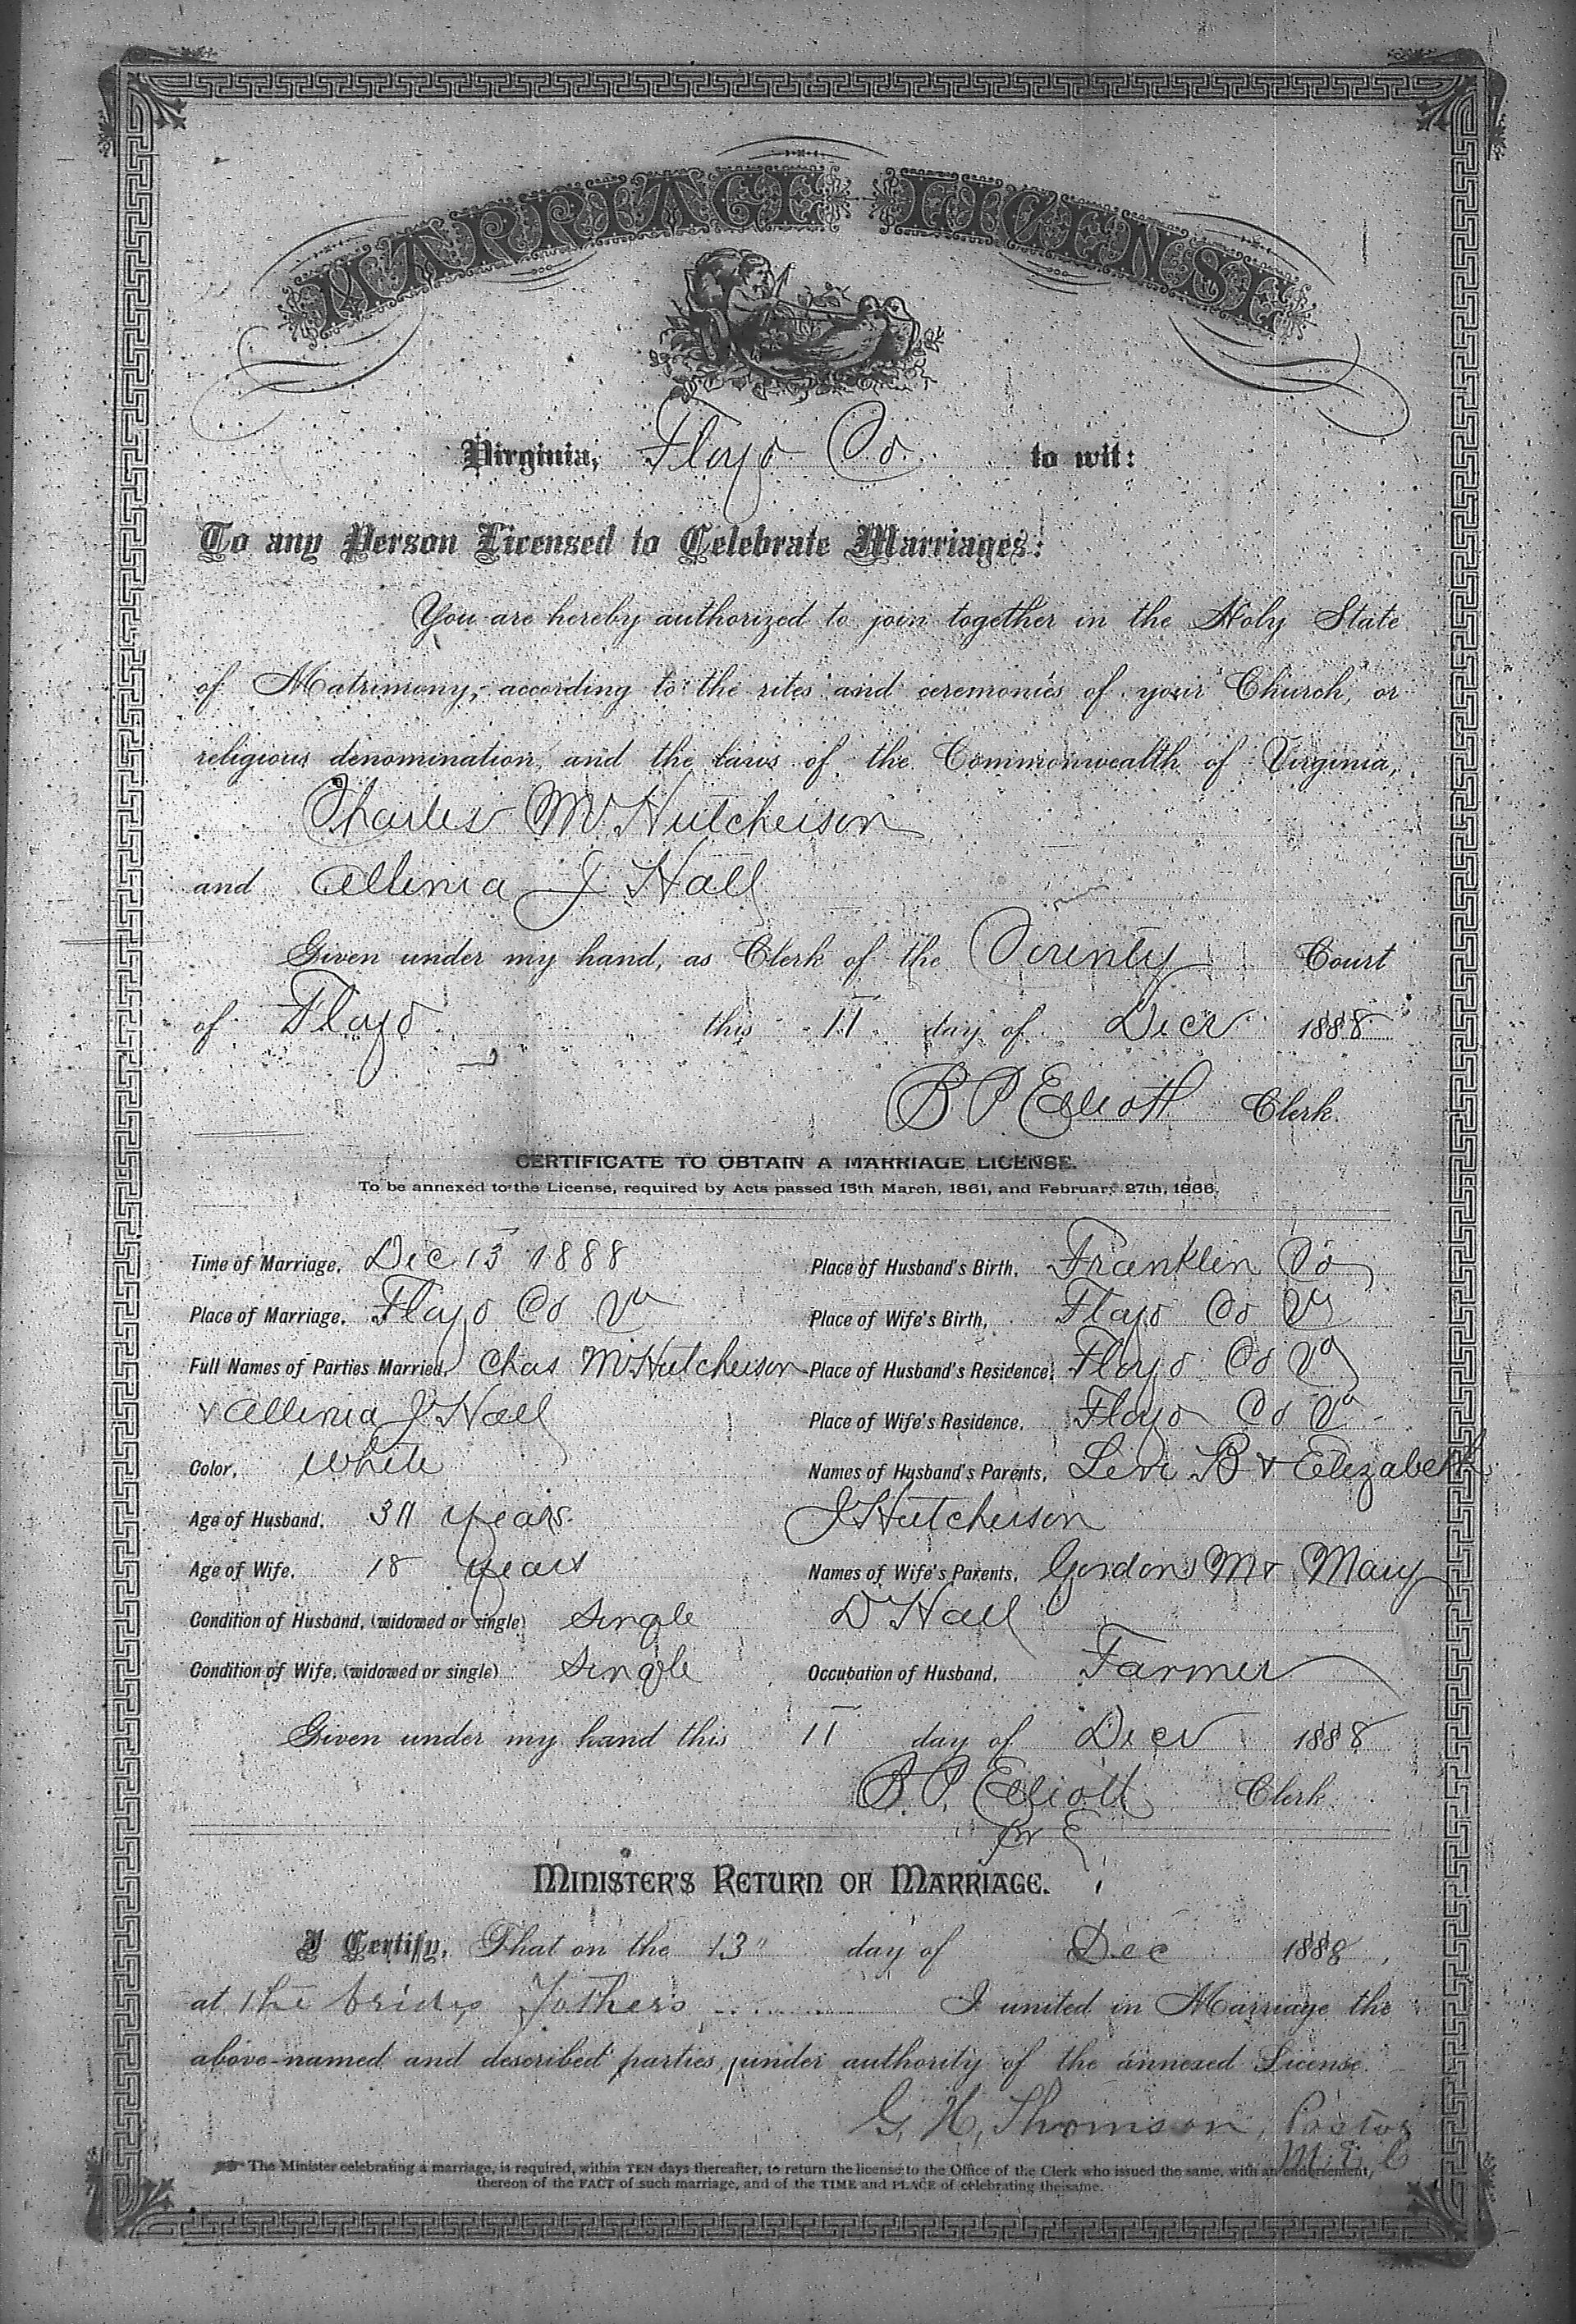 MARRIAGE LICENSE
Virginia, Floyd Co. to wit:
To any Person Licensed to Celebrate Marriages:
You are hereby authorized to join together in the Holy State
of Matrimony, according to the rites and ceremonies of your Church, or
religious denomination, and the laws of the Commonwealth of Virginia,
Charles M Hutcheison
and Allenia J Hall
Given under my hand, as Clerk of the County Court
of Floyd this 11 day of Decr 1888
B P Elliott Clerk.
CERTIFICATE TO OBTAIN A MARRIAGE LICENSE.
To be annexed to the License, required by Acts passed 15th March, 1861, and February 27th, 1866.
Time of Marriage, Dec 13 1888
Place of Marriage, Floyd Co Va
Full Names of Parties Married, Chas M Hutcheison
& Allenia J Hall
Color, White
Age of Husband, years
Age of Wife, 18 years
Condition of Husband, (widowed or single) Single
Condition of Wife, (widowed or single) Single
Place of Husband's Birth, Franklin Co
Place of Wife's Birth, Floyd Co Va
Place of Husband's Residence, Floyd Co Va
Place of Wife's Residence, Floyd Co Va
Names of Husband's Parents, Levi B & Elizabeth
J Hutcheison
Names of Wife's Parents, Gordon M & Mary
D Hall
Occupation of Husband, Farmer
Given under my hand this 11 day of Decr 1888
B. P. Elliott Clerk
MINISTER'S RETURN OF MARRIAGE.
I Certify, That on the 13" day of Dec 1888,
at the brides Fathers I united in Marriage the
above-named and described parties, under authority of the annexed License.
G. H. Thomson, Pastor
M E C
The Minister celebrating a marriage, is required, within TEN days thereafter, to return the license to the Office of the Clerk who issued the same, with an endorsement,
thereon of the FACT of such marriage, and of the TIME and PLACE of celebrating the same.